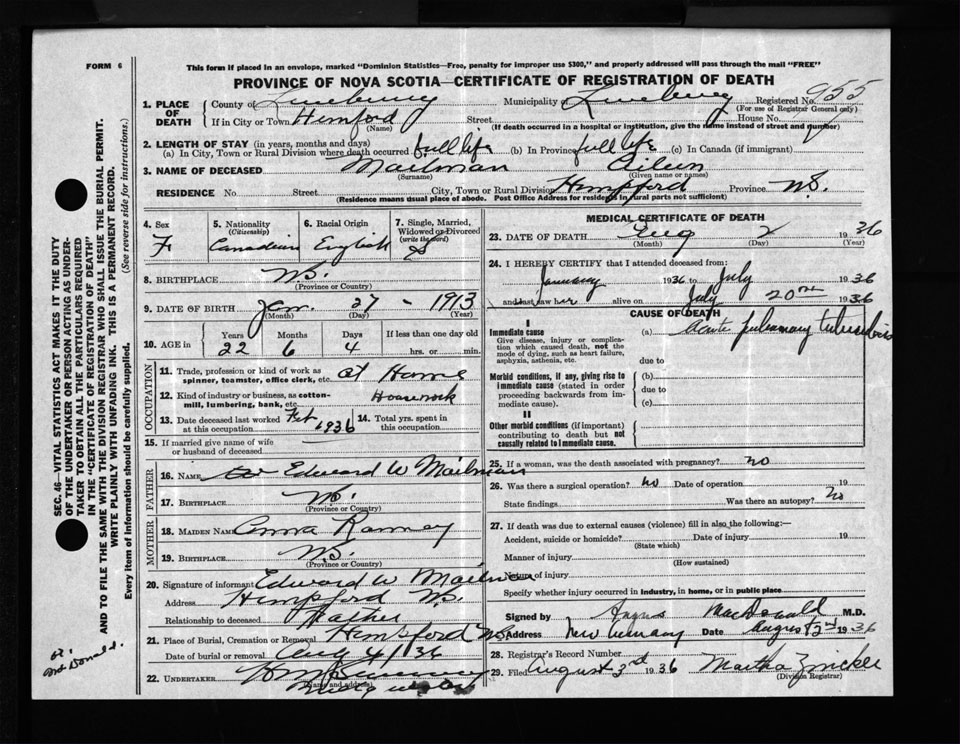 FORM 6
This form if placed in an envelope, marked "Dominion Statistics—Free, penalty for improper use $300," and properly addressed will pass through the mail "FREE"
PROVINCE OF NOVA SCOTIA—CERTIFICATE OF REGISTRATION OF DEATH
1. PLACE OF DEATH
County of Lunenburg Municipality Lunenburg Registered No. 955
(For use of Registrar General only)
If in City or Town Hemford Street House No.
(Name) (If death occurred in a hospital or institution, give the name instead of street and number)
2. LENGTH OF STAY (in years, months and days)
(a) In City, Town or Rural Division where death occurred full life (b) In Province full life (c) In Canada (if immigrant)
3. NAME OF DECEASED Mailman Eileen
(Surname) (Given name or names)
RESIDENCE No. Street City, Town or Rural Division Hempford Province N.S.
(Residence means usual place of abode. Post Office Address for residents in rural parts not sufficient)
4. Sex F
5. Nationality (Citizenship) Canadian
6. Racial Origin English
7. Single, Married, Widowed or Divorced (write the word) S
8. BIRTHPLACE N.S.
(Province or Country)
9. DATE OF BIRTH Jan. 27 - 1913
(Month) (Day) (Year)
10. AGE in Years 22 Months 6 Days 4 If less than one day old hrs. or min.
OCCUPATION
11. Trade, profession or kind of work as spinner, teamster, office clerk, etc. at Home
12. Kind of industry or business, as cotton-mill, lumbering, bank, etc. Housework
13. Date deceased last worked at this occupation Feb 1936
14. Total yrs. spent in this occupation
15. If married give name of wife or husband of deceased
FATHER
16. NAME Edward W Mailman
17. BIRTHPLACE N.S.
(Province or Country)
MOTHER
18. MAIDEN NAME Anna Ramsay
19. BIRTHPLACE N.S.
(Province or Country)
20. Signature of informant Edward W Mailman
Address Hempford N.S.
Relationship to deceased Father
21. Place of Burial, Cremation or Removal Hempford N.S.
Date of burial or removal Aug 4/36
22. UNDERTAKER
(Name and address)
MEDICAL CERTIFICATE OF DEATH
23. DATE OF DEATH Aug 2 1936
(Month) (Day) (Year)
24. I HEREBY CERTIFY that I attended deceased from:
January 1936 to July 1936
and last saw her alive on July 20 1936
CAUSE OF DEATH
I
Immediate cause
Give disease, injury or complication which caused death, not the mode of dying, such as heart failure, asphyxia, asthenia, etc.
(a) Acute pulmonary tuberculosis
due to
Morbid conditions, if any, giving rise to immediate cause (stated in order proceeding backwards from immediate cause).
(b)
due to
(c)
II
Other morbid conditions (if important) contributing to death but not causally related to immediate cause.
25. If a woman, was the death associated with pregnancy? no
26. Was there a surgical operation? no Date of operation 19
State findings Was there an autopsy? no
27. If death was due to external causes (violence) fill in also the following:—
Accident, suicide or homicide? Date of injury 19
(State which)
Manner of injury
(How sustained)
Nature of injury
Specify whether injury occurred in industry, in home, or in public place
Signed by Angus MacDonald M.D.
Address New Germany Date August 2nd 1936
28. Registrar's Record Number
29. Filed August 3rd 1936 Martha Zwicker
(Division Registrar)
SEC. 46—VITAL STATISTICS ACT MAKES IT THE DUTY
OF THE UNDERTAKER OR PERSON ACTING AS UNDER-
TAKER TO OBTAIN ALL THE PARTICULARS REQUIRED
IN THE "CERTIFICATE OF REGISTRATION OF DEATH"
AND TO FILE THE SAME WITH THE DIVISION REGISTRAR WHO SHALL ISSUE THE BURIAL PERMIT.
WRITE PLAINLY WITH UNFADING INK. THIS IS A PERMANENT RECORD.
Every item of information should be carefully supplied. (See reverse side for instructions.)
McDonald.